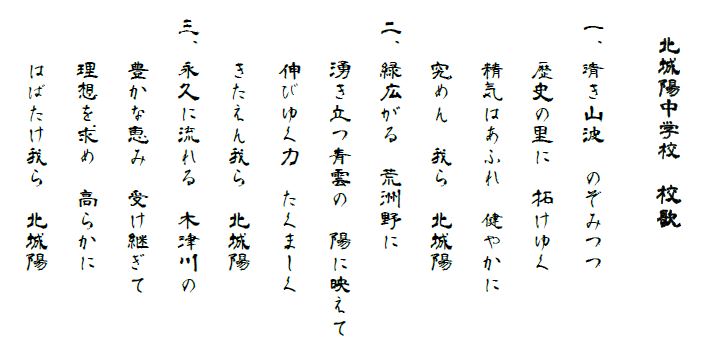 北城陽中学校　校歌
一、清き山波　のぞみつつ
歴史の里に　拓けゆく
精気はあふれ　健やかに
究めん　我ら　北城陽
二、緑広がる　荒洲野に
湧き立つ青雲の　陽に映えて
伸びゆく力　たくましく
きたえん我ら　北城陽
三、永久に流れる　木津川の
豊かな恵み　受け継ぎて
理想を求め　高らかに
はばたけ我ら　北城陽